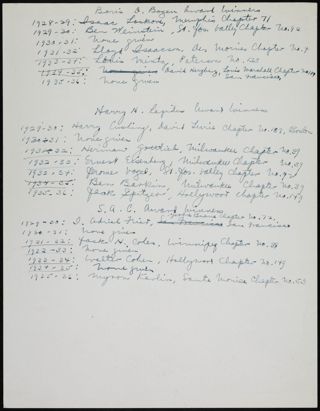 Boris D. Bogen Award Winners
1928-29: Isaac Laskove, Memphis Chapter 71
1929-30: Ben Weinstein, St. Jos. Valley Chapter No. 92
1930-31: None given
1931-32: Lloyd Isaacson, Des Moines Chapter No. 9
1933-34: Louis Mintz, Paterson No. 123
1934-35: David Herzberg, Louis Marshall Chapter No.
San Francisco
1935-36: None given
Harry H. Lapidus Award Winners
1929-30: Harry Cushing, David Lurie Chapter No. 187, Boston
1930-31: None given
1931-32: Herman Gottlieb, Milwaukee Chapter No. 39
1932-33: Ernest Eisenberg, Milwaukee Chapter No. 39
1933-34: Jerome Vogel, St. Jos. Valley Chapter No. 92
1934-35: Ben Barkin, Milwaukee Chapter No. 39
1935-36: Jack Spitzer, Hollywood Chapter No. 149
S.A.C. Award Winners
1929-30: I. Adriel Fried, Chapter No. 72, San Francisco
1930-31: None given
1931-32: Jack H. Cohen, Winnipeg Chapter No.
1932-33: None given
1933-34: Walter Cohen, Hollywood Chapter No. 149
1934-35: None given
1935-36: Myron Karlin, Santa Monica Chapter No. 53